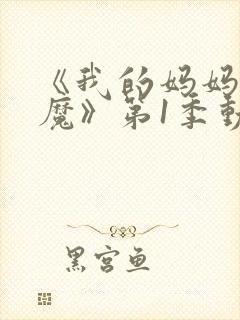 《我的妈妈
魔》第1季
黑宫鱼